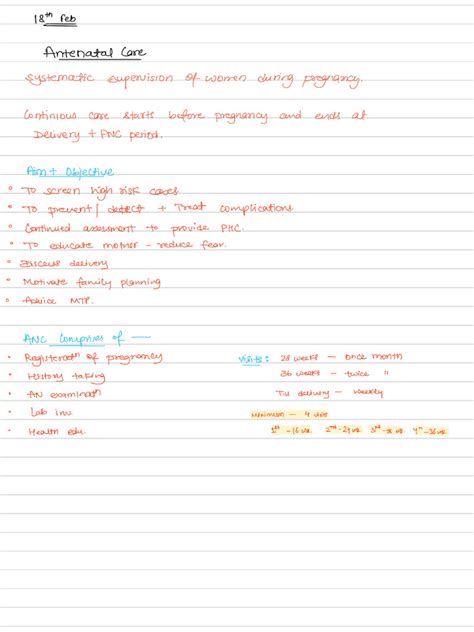 18th Feb
Antenatal Care
Systematic supervision of women during pregnancy.
Continious care starts before pregnancy and ends at
Delivery + PNC period.
Aim + Objective
° To screen high risk cases
° To prevent / detect + Treat complications.
° Continued assessment to provide PHC.
° To educate mother - reduce fear.
° Discuss delivery
° Motivate family planning
° Advice MTP.
ANC Comprises of —
• Registeratn of pregnancy
• History taking
• AN examinatn
• Lab inv.
• Health edu.
Visits: 28 weeks — once month
36 weeks — twice "
Till delivery — weekly
Minimum — 4 visits
1st - 16 wk. 2nd - 24 wk. 3rd - wk 4th - 36 wk.